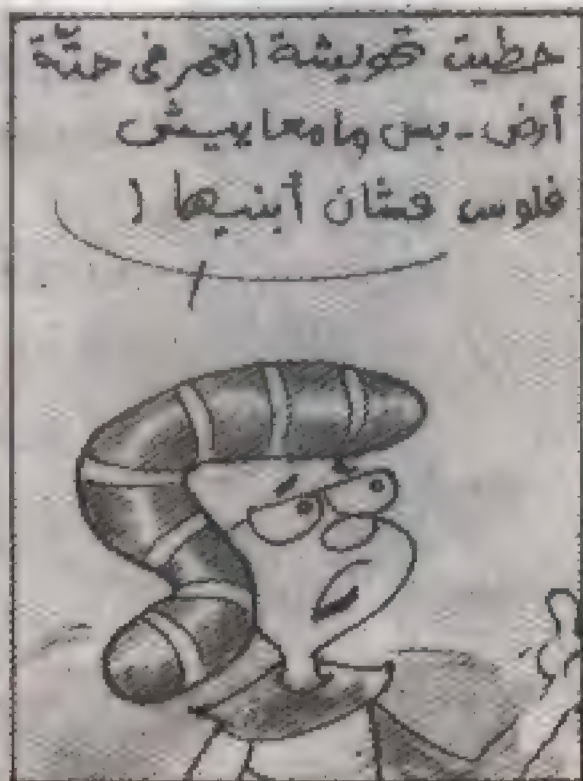 حطيت تحويشة العمر فى حتّة
أرض - بس ما معاييش
فلوس عشان أبنيها !